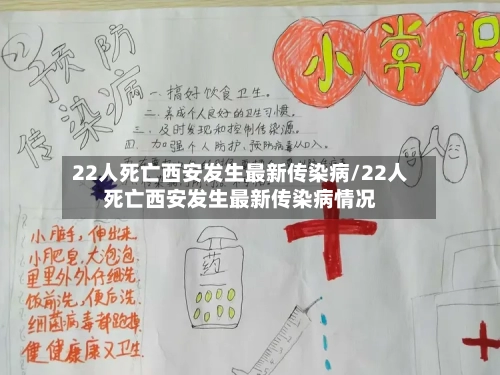 小常识
预防
传染病
一、搞好饮食卫生。
二、养成个人良好的卫生习惯。
三、及时发现和控制传染源。
四、加强个人防护,预防病毒从口入。
22人死亡西安发生最新传染病/22人
死亡西安发生最新传染病情况
小脏手,伸出来
小肥皂,大泡泡
里里外外仔细洗
饭前洗,便后洗
细菌病毒都跑掉
健健康康又卫生
药